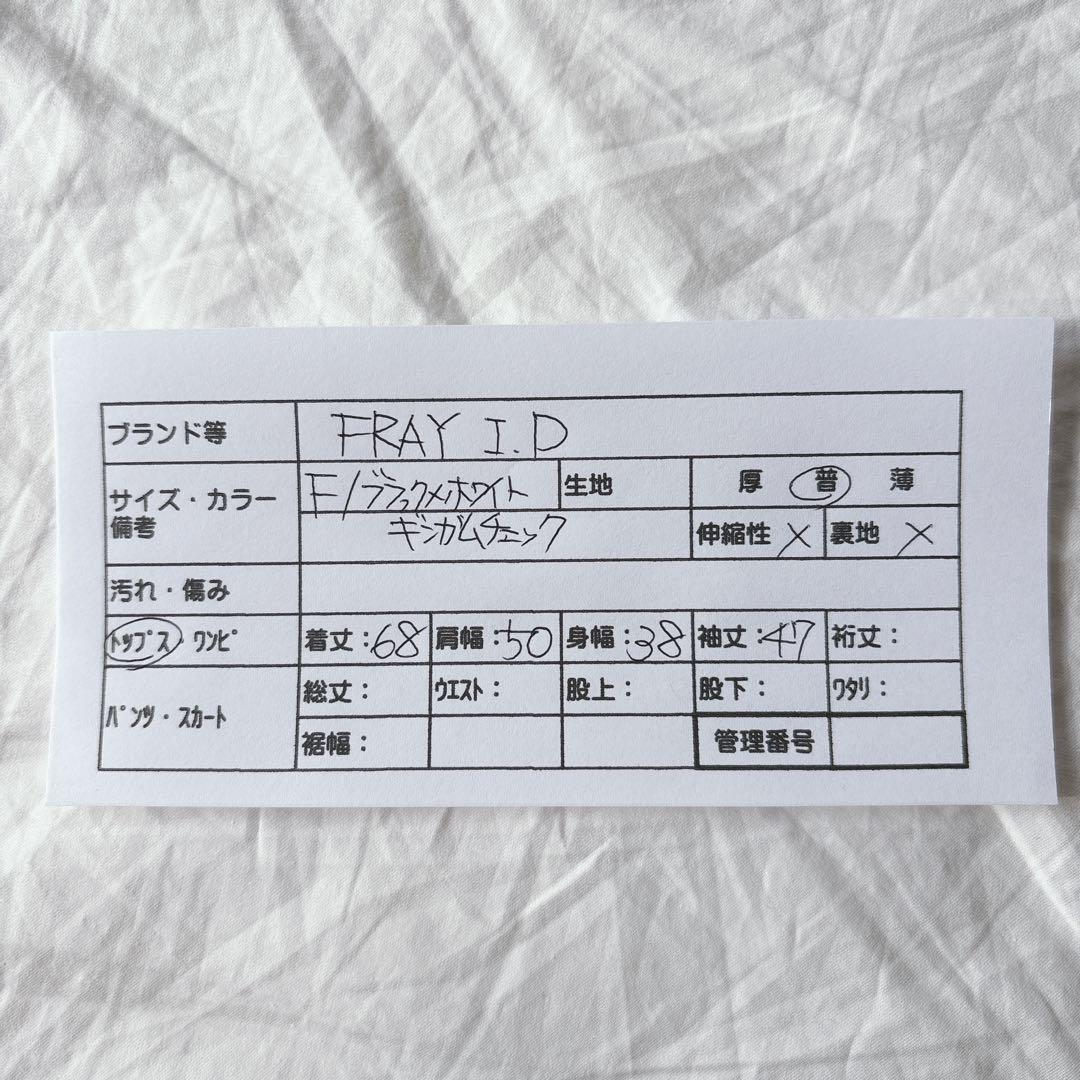 ブランド等 FRAY I.D
サイズ・カラー F/ブラック×ホワイト 生地 厚 普 薄
備考 ギンガムチェック 伸縮性 × 裏地 ×
汚れ・傷み
トップス ワンピ 着丈:68 肩幅:50 身幅:38 袖丈:47 裄丈:
パンツ・スカート 総丈: ウエスト: 股上: 股下: ワタリ:
裾幅: 管理番号